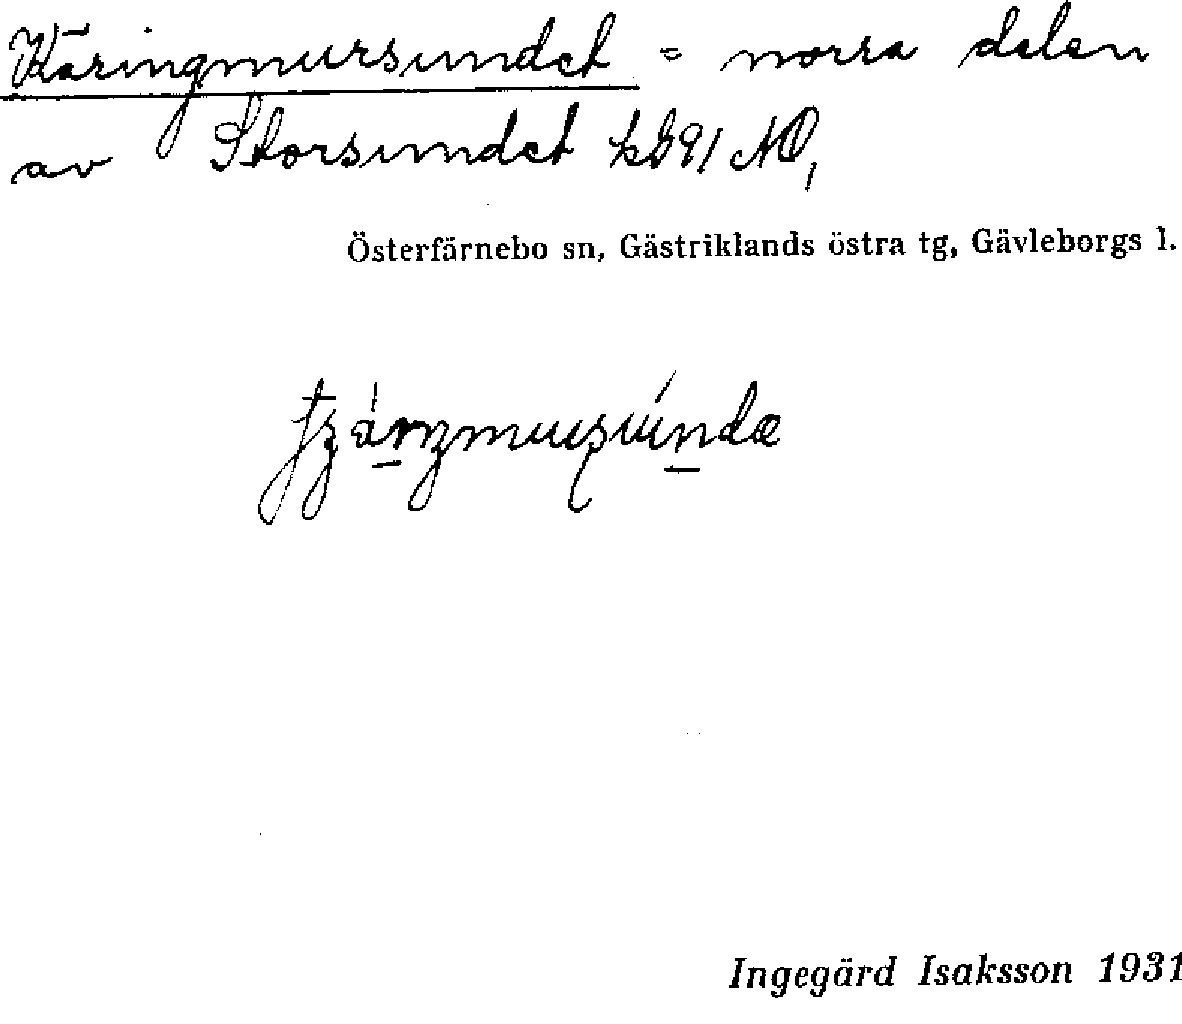 Käringmursundet = norra delen
av Storsundet kbl 91 NO,
Österfärnebo sn, Gästriklands östra tg, Gävleborgs l.
Ingegärd Isaksson 1931